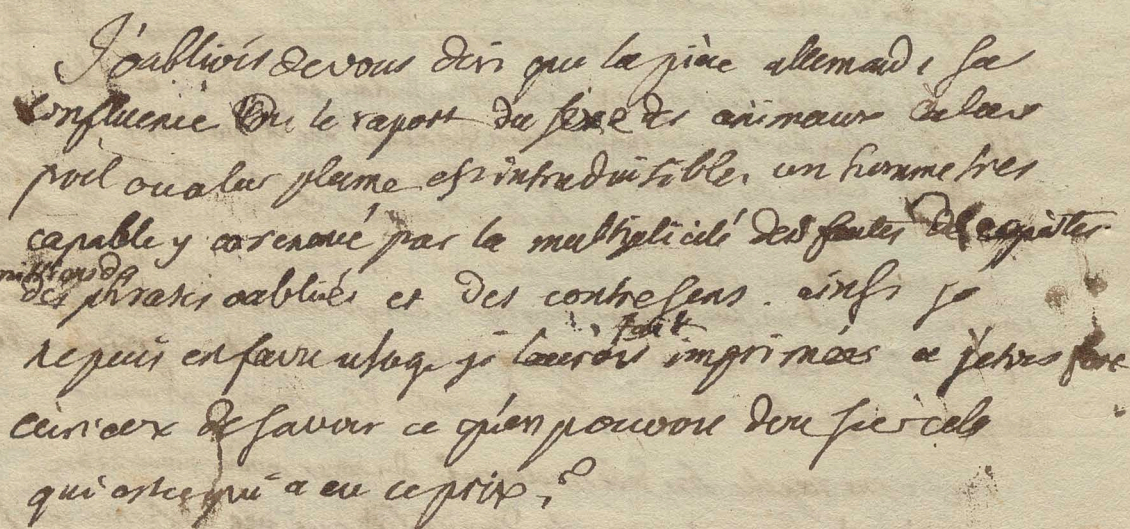 J'oubliois de vous dire que la pièce allemande sur
l'influence ou le raport du sexe des animaux à leur
poil ou a leur plume est intraduisible. un homme tres
capable y a renoncé par la multiplicité des fautes de copistes
omissions de
des phrases oubliées et des contresens. ainsi je
ne puis en faire usage je l'aurois fait imprimée et j'etois fort
curieux de savoir ce qu'on pouvoit dire sur cela
qui est ce qui a eu ce prix ?